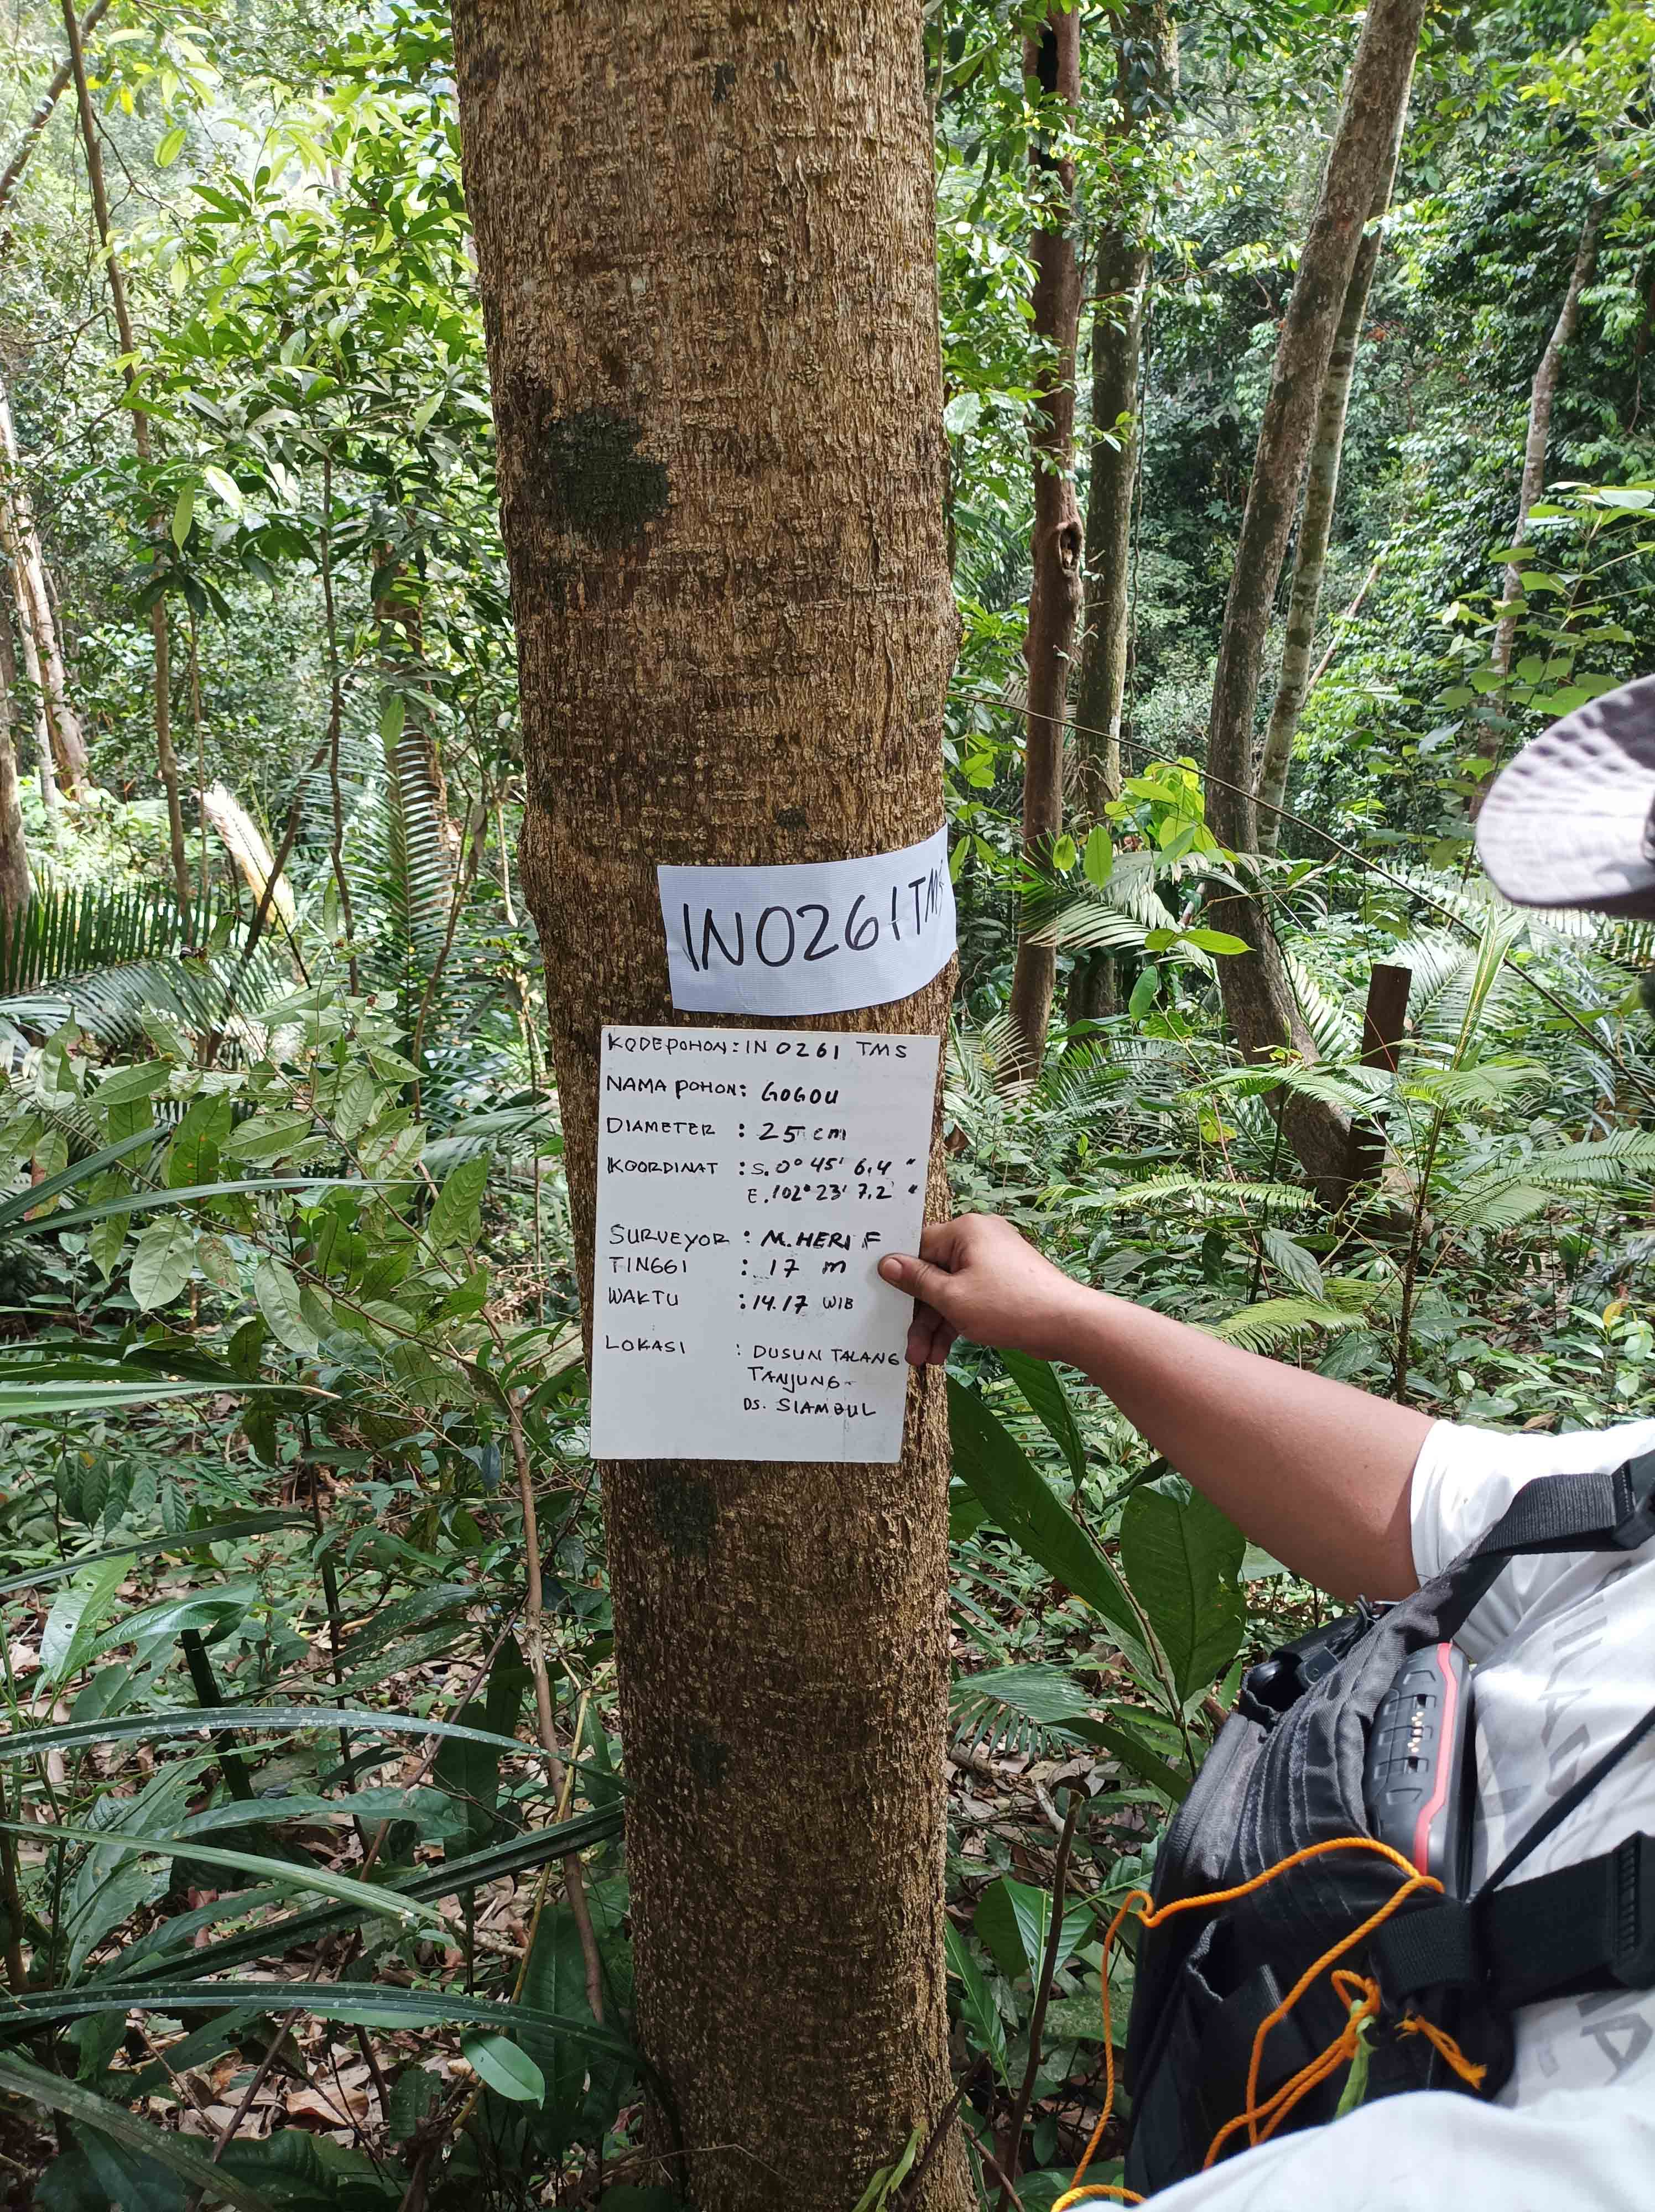 IN0261TMS
KODE POHON : IN 0261 TMS
NAMA POHON : GOGOU
DIAMETER : 25 cm
KOORDINAT : S. 0° 45' 6.4 "
E. 102° 23' 7.2 "
SURVEYOR : M. HERI F
TINGGI : 17 m
WAKTU : 14.17 WIB
LOKASI : DUSUN TALANG
TANJUNG
DS. SIAMBUL